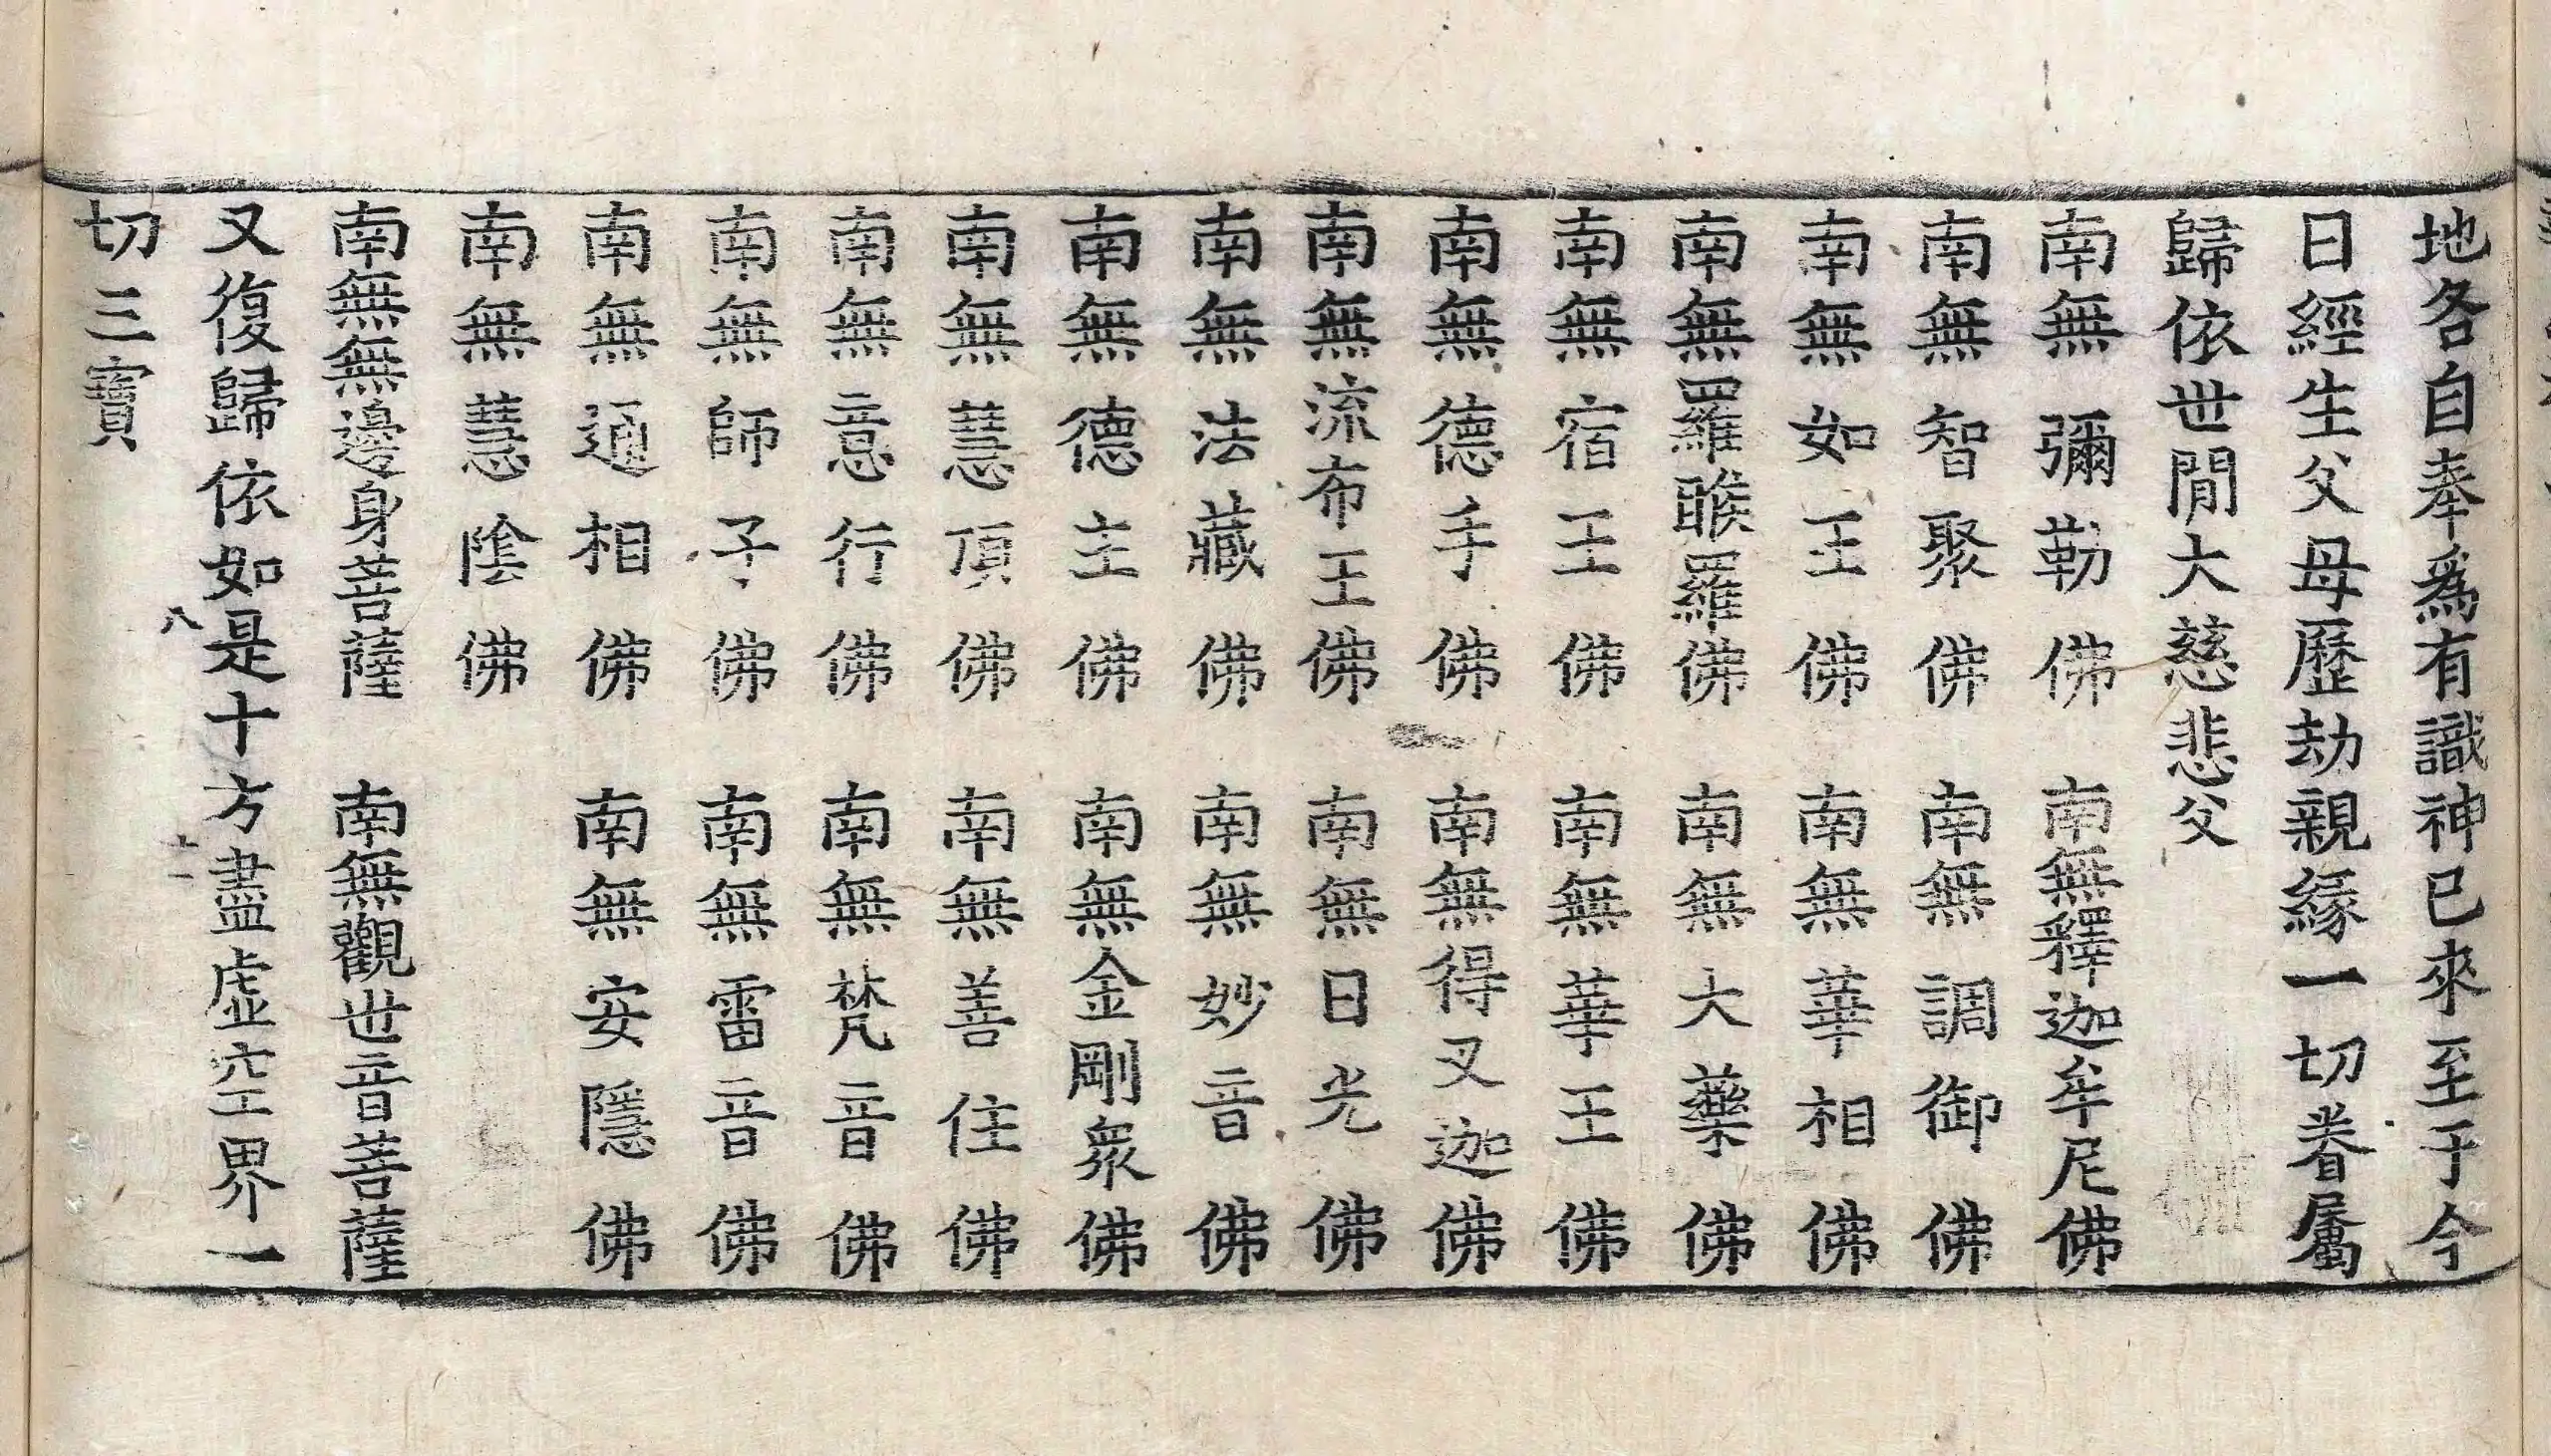 地各自奉爲有識神已來至于今
日經生父母歷劫親緣一切眷屬
歸依世閒大慈悲父
南無彌勒佛　南無釋迦牟尼佛
南無智聚佛　南無調御佛
南無如王佛　南無華相佛
南無羅睺羅佛　南無大藥佛
南無宿王佛　南無華王佛
南無德手佛　南無得叉迦佛
南無流布王佛　南無日光佛
南無法藏佛　南無妙音佛
南無德主佛　南無金剛衆佛
南無慧頂佛　南無善住佛
南無意行佛　南無梵音佛
南無師子佛　南無雷音佛
南無通相佛　南無安隱佛
南無慧陰佛
南無無邊身菩薩　南無觀世音菩薩
又復歸依如是十方盡虛空界一
八
十一
切三寶